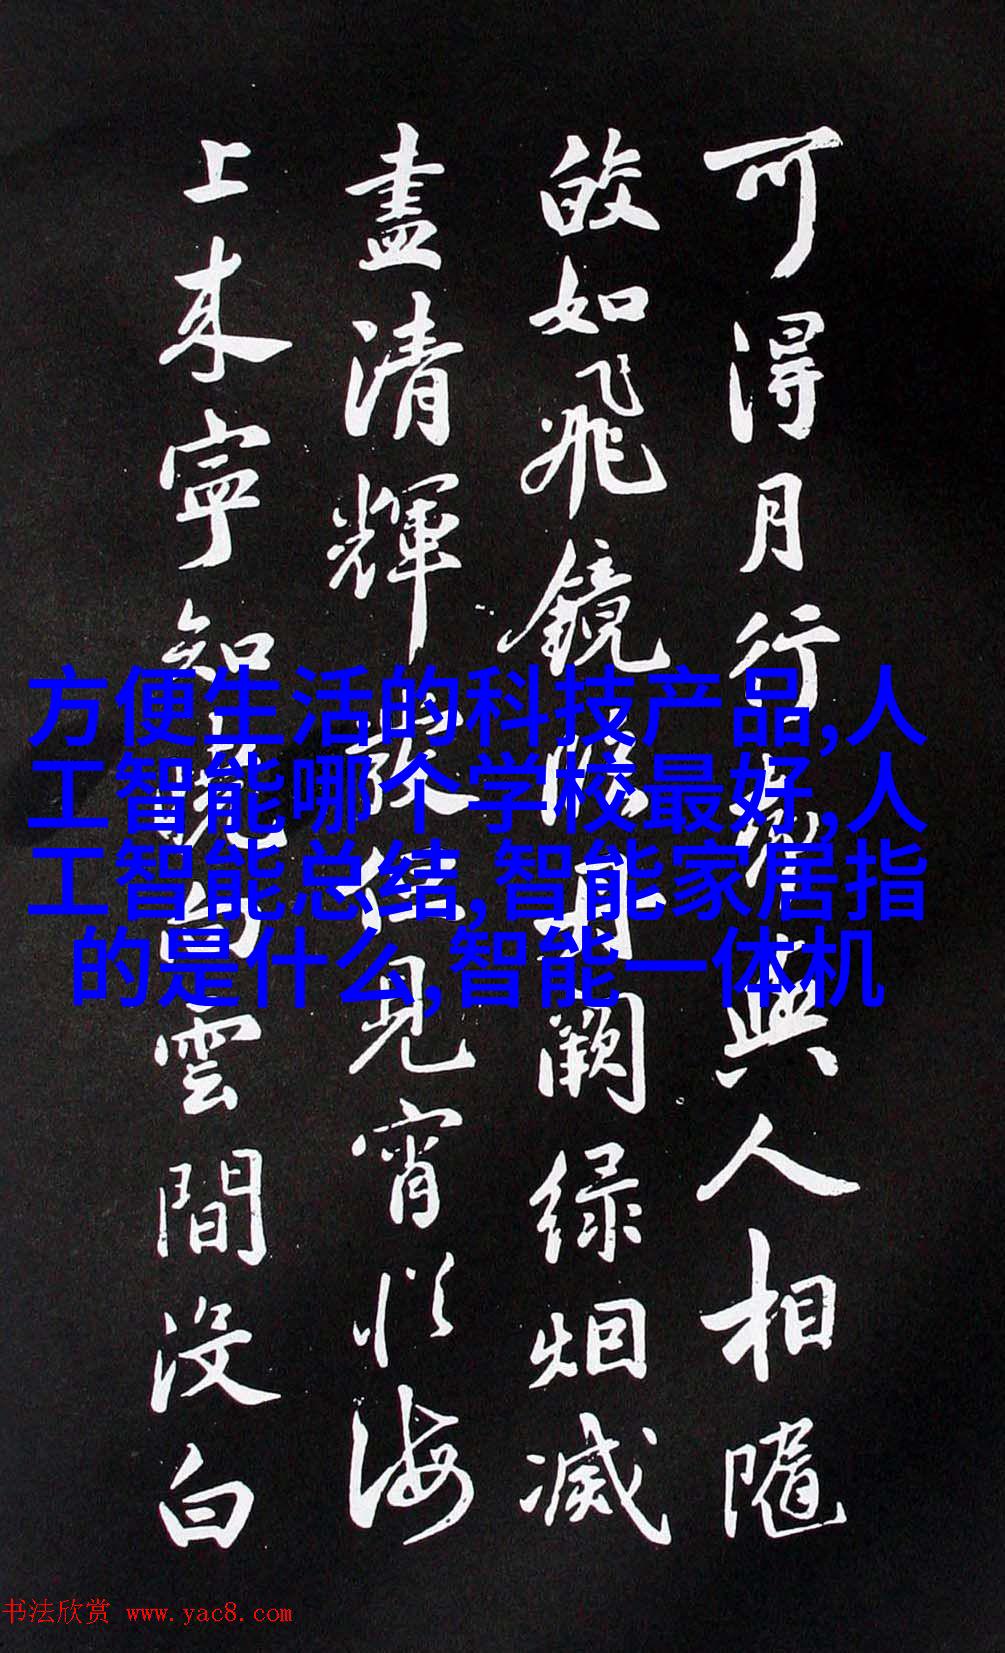 可得月行卻與人相隨
皎如飛鏡臨丹闕緑烟滅
盡清輝發但見宵從海
上来寧知曉向雲間没白
方便生活的科技产品,人
工智能哪个学校最好,人
工智能总结,智能家居指
的是什么,智能一体机
书法欣赏 www.yac8.com